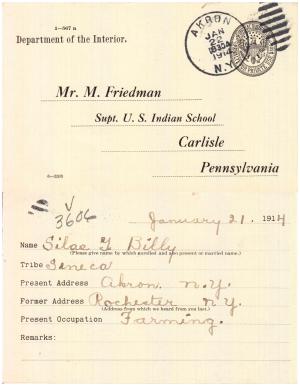 5-567 a
Department of the Interior.
AKRON
JAN
22
830A
1914
N.Y.
Mr. M. Friedman
Supt. U. S. Indian School
Carlisle
Pennsylvania
V
3606
January 21. 1914
Name Silas Y Billy
(Please give name by which enrolled and also present or married name.)
Tribe Seneca
Present Address Akron. N.Y.
Former Address Rochester N Y.
(Address from which we heard from you last.)
Present Occupation Farming.
Remarks: